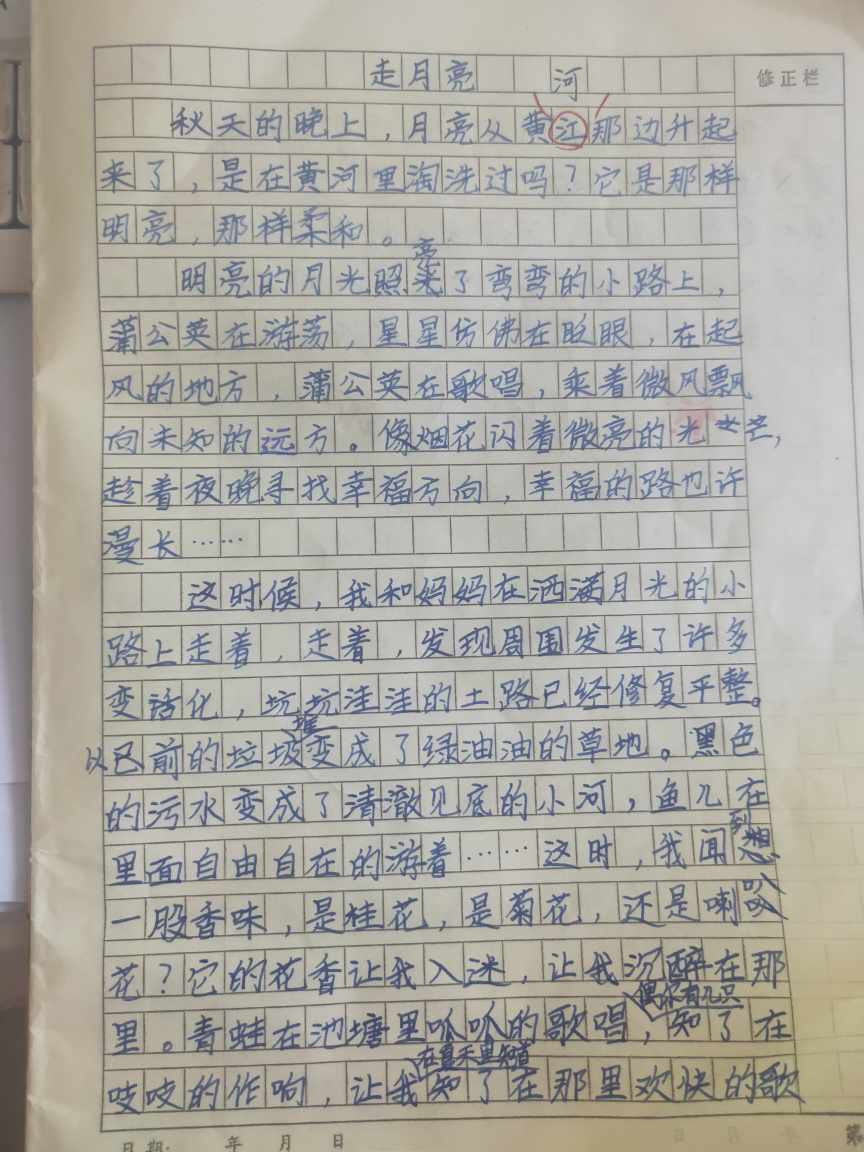 走月亮 河
修正栏
秋天的晚上，月亮从黄江那边升起
来了，是在黄河里淘洗过吗？它是那样
明亮，那样柔和。
亮
明亮的月光照来了弯弯的小路上，
蒲公英在游荡，星星仿佛在眨眼，在起
风的地方，蒲公英在歌唱，乘着微风飘
向未知的远方。像烟花闪着微亮的光芒，
趁着夜晚寻找幸福方向，幸福的路也许
漫长……
这时候，我和妈妈在洒满月光的小
路上走着，走着，发现周围发生了许多
变话化，坑坑洼洼的土路已经修复平整。
堆
以已前的垃圾变成了绿油油的草地。黑色
的污水变成了清澈见底的小河，鱼儿在
到
里面自由自在的游着……这时，我闻想
叭
一股香味，是桂花，是菊花，还是喇
花？它的花香让我入迷，让我沉醉在那
偶尔有几只
里。青蛙在池塘里呱呱的歌唱，知了在
在夏天里知道
吱吱的作响，让我知了在那里欢快的歌
日期： 年 月 日
第